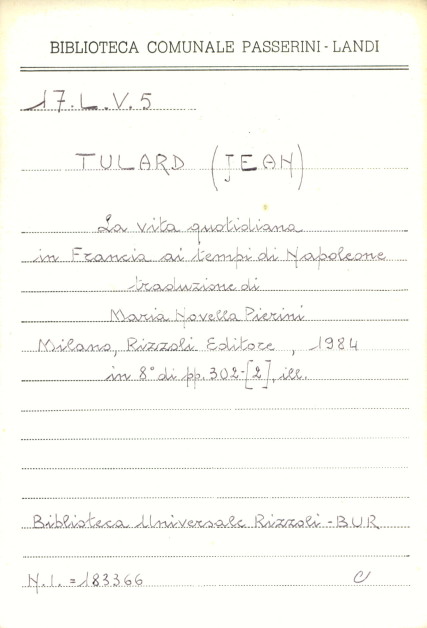 BIBLIOTECA COMUNALE PASSERINI - LANDI
17.L.V.5
TULARD (JEAN)
La vita quotidiana
in Francia ai tempi di Napoleone
traduzione di
Maria Novella Pierini
Milano, Rizzoli Editore, 1984
in 8° di pp. 302-[2], ill.
Biblioteca Universale Rizzoli - BUR
N.I. = 183366 C